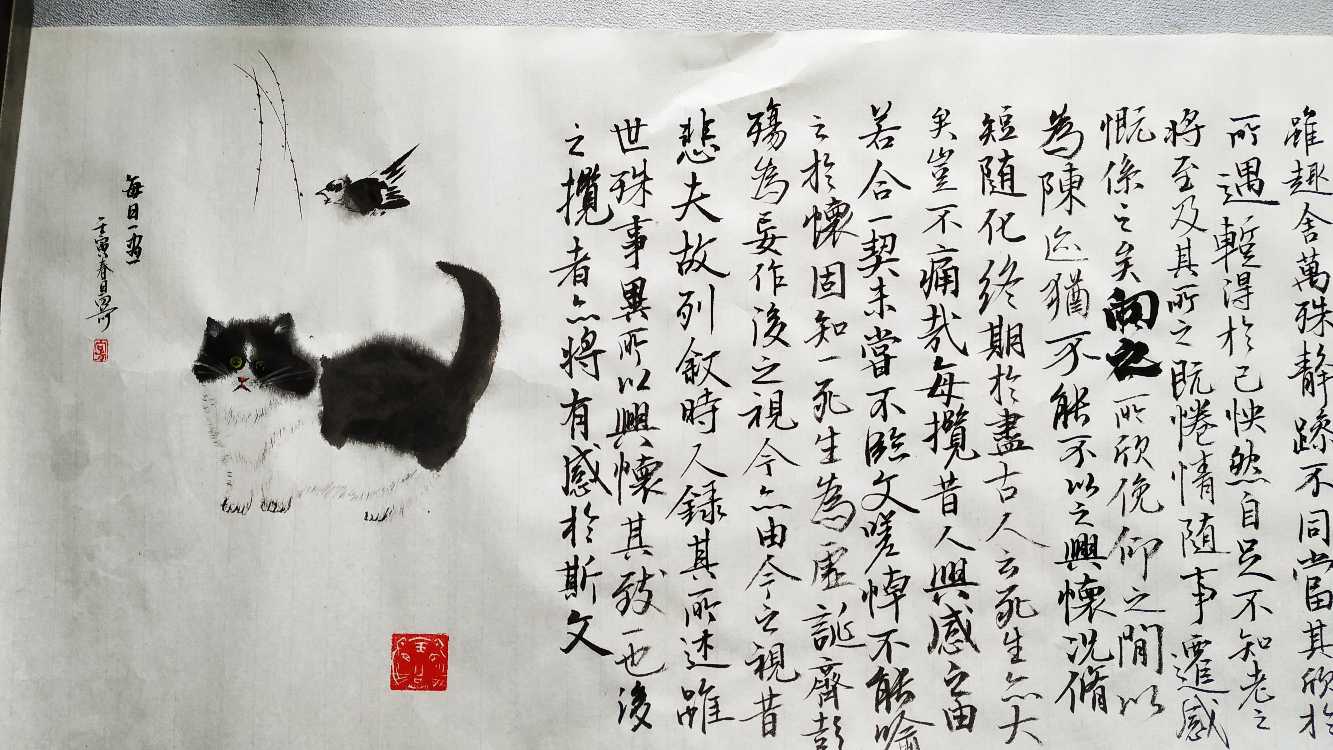 雖趣舍萬殊靜躁不同當其欣於
所遇蹔得於己怏然自足不知老之
將至及其所之既惓情隨事遷感
慨係之矣向之所欣俛仰之閒以
為陳迹猶不能不以之興懷況脩
短隨化終期於盡古人云死生亦大
矣豈不痛哉每攬昔人興感之由
若合一契未嘗不臨文嗟悼不能喻
之於懷固知一死生為虛誕齊彭
殤為妄作後之視今亦由今之視昔
悲夫故列敘時人録其所述雖
世殊事異所以興懷其致一也後
之攬者亦將有感於斯文
每日一画
壬寅春日